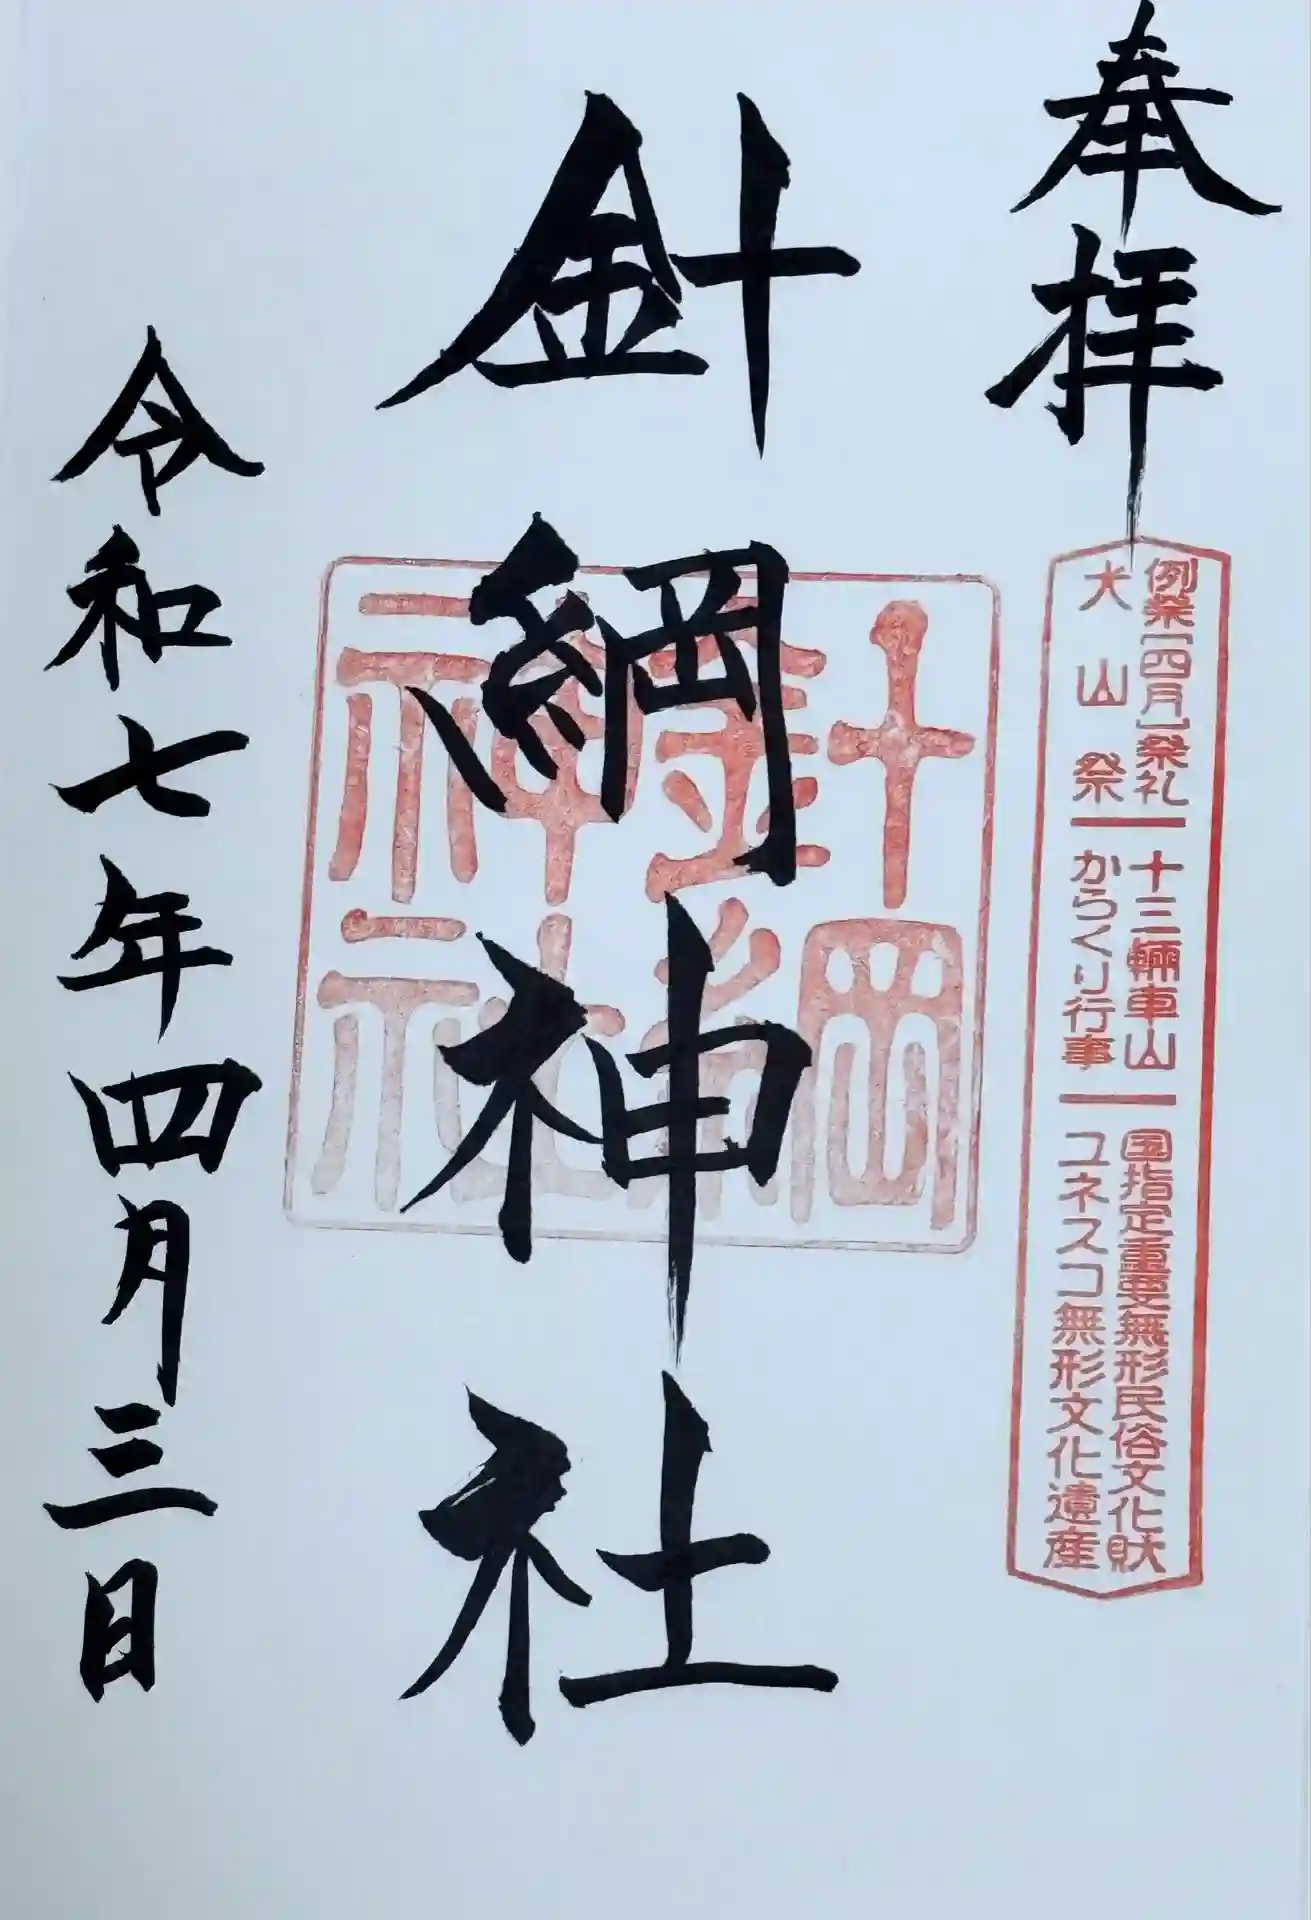 奉拝
例祭[四月]祭礼 十三輛車山 国指定重要無形民俗文化財
犬山祭 からくり行事 ユネスコ無形文化遺産
針綱神社
針綱
神社
令和七年四月三日